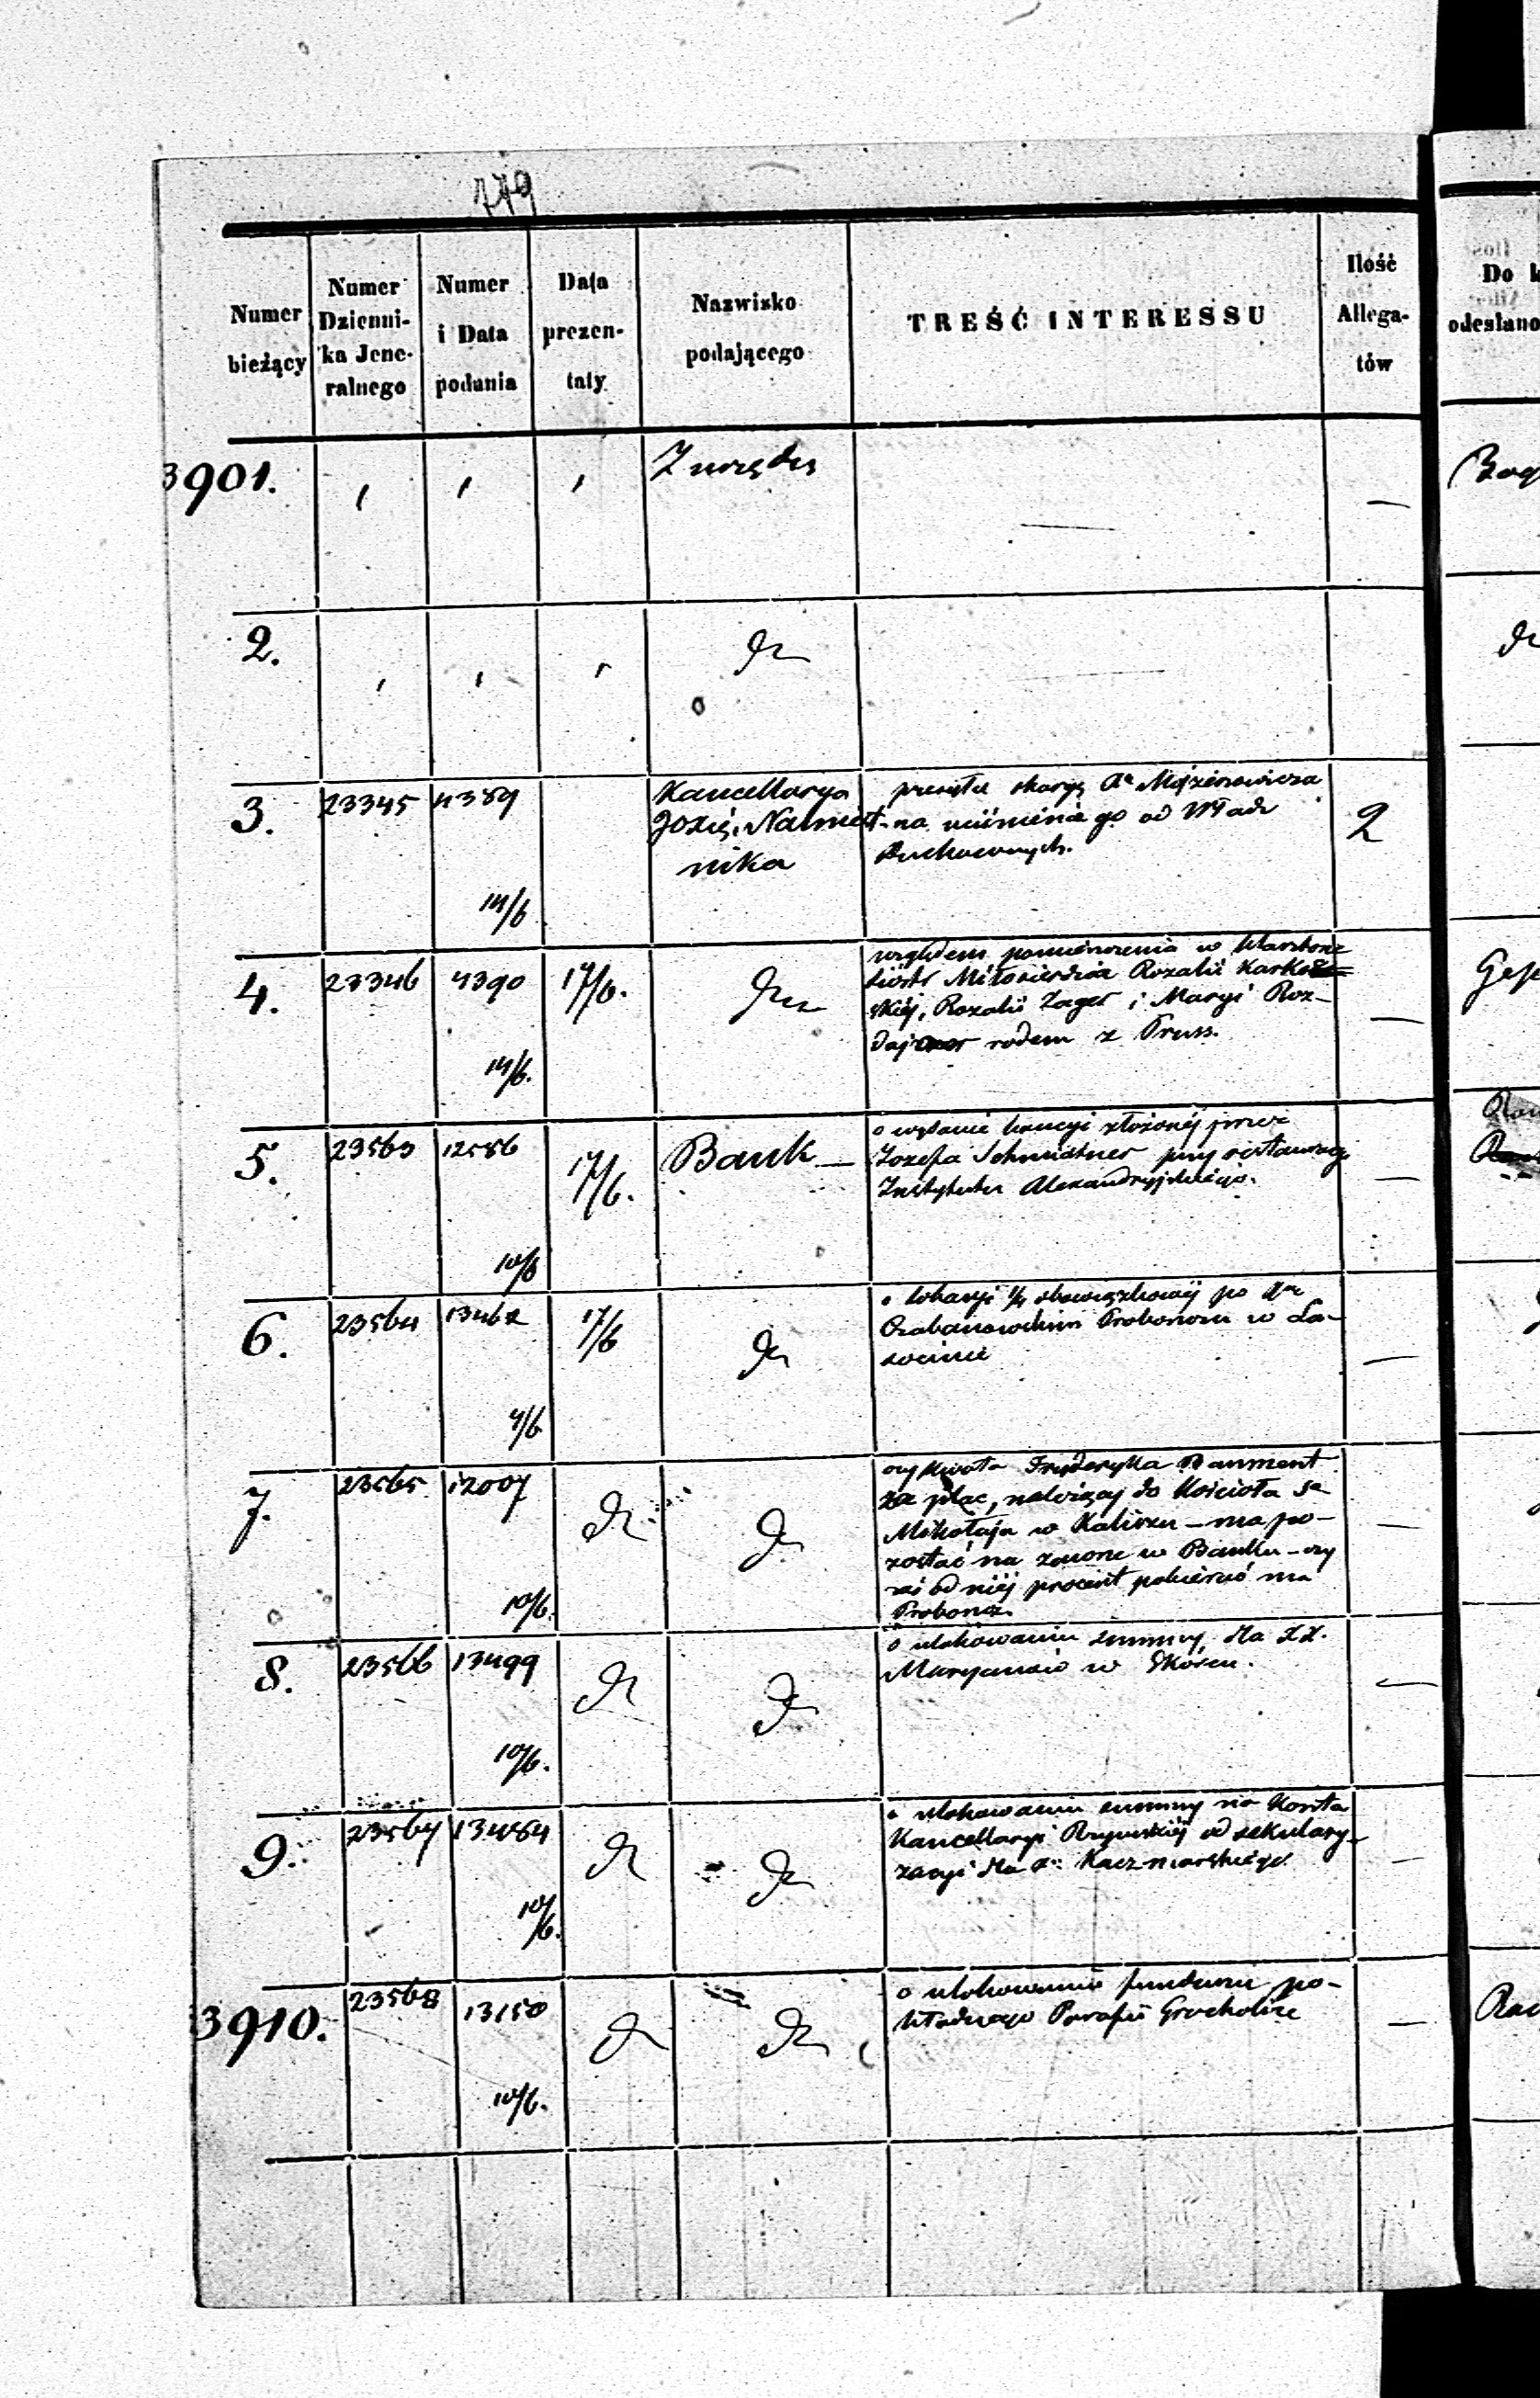 779
Numer bieżący
Numer Dzienni-ka Jene-ralnego
Numer i Data podania
Data prezen-taty
Nazwisko podającego
TREŚĆ INTERESSU
Ilość Allega-tów
Do k
odesłano
3901. Z urzędu —
2. dto
3. 23345 4389 14/6
Kancellarya
Xożci Namiest-
nika
przesyła skargę Xa Mojzesowicza
na uciśnienie go od Władz
Duchownych.
2
4. 23346 4390 14/6. 17/6. dto
względem pomieszczenia w klasztorze
Sióstr Miłosierdzia Rozalii Karkow
skiéj, Rozalii Zager i Maryi Roz-
rodem z Pruss.
—
5. 23563 12586 10/6 17/6. Bank —
o wydanie kaucyi złożonéj przez
Jozefa Schmidtner przy restauracyi
Instytutu Alexandryjskiego.
—
6. 23564 13462 9/6 17/6 dto
o lokacyi 1/4 obowiązkowéj po Xu
Czabanowskim Proboszczu w La-
socinie
—
7. 23565 12007 10/6. dto dto
czy kwota Fryderyka Baument
za plac, należący do Kościoła Sgo
Mikołaja w Kaliszu — ma po-
zostać na zawsze w Banku — czy
też od niéj procent pobierać ma
Proboszcz.
—
8. 23566 13499 10/6. dto dto
o ulokowaniu summy, dla XX.
Maryanów w Skórcu.
—
9. 23567 13484 10/6. dto dto
o ulokowaniu summy na Konto
Kancellaryi Rzymskiéj od sekulary-
zacyi dla Xa Kaczmarskiego
—
3910. 23568 13150 10/6. dto dto
o ulokowanie funduszu po-
kładnego Parafii Grocholice
—